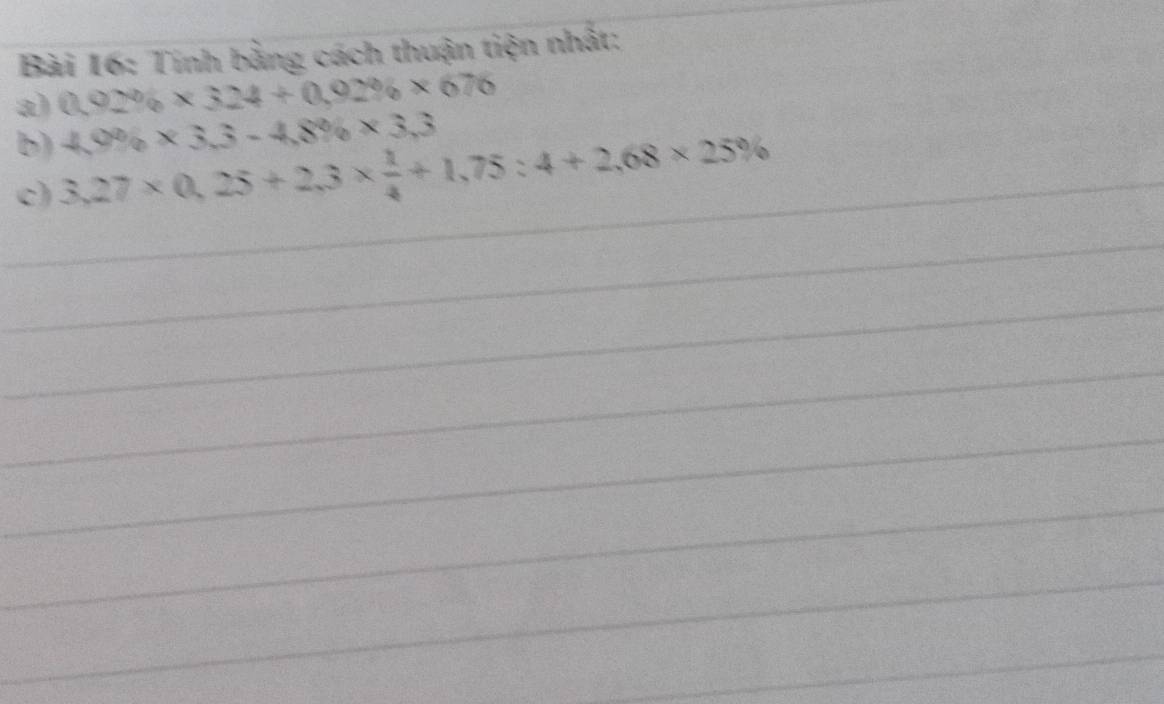 Bài 16: Tính bằng cách thuận tiện nhất:
a) 0,92% × 324 + 0,92% × 676
b) 4,9% × 3,3 - 4,8% × 3,3
c) 3,27 × 0, 25 + 2,3 × 1/4 + 1,75 : 4 + 2,68 × 25%